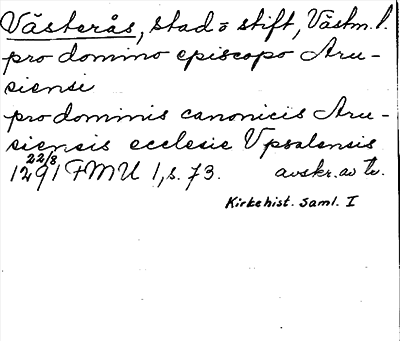 Västerås, stad o stift, Västm. l.
pro domino episcopo Aru-
siensi
pro dominis canonicis Aru-
siensis ecclesie Vpsalensis
22/8
1291 FMU 1, s. 73. avskr. av
Kirkehist. Saml. I